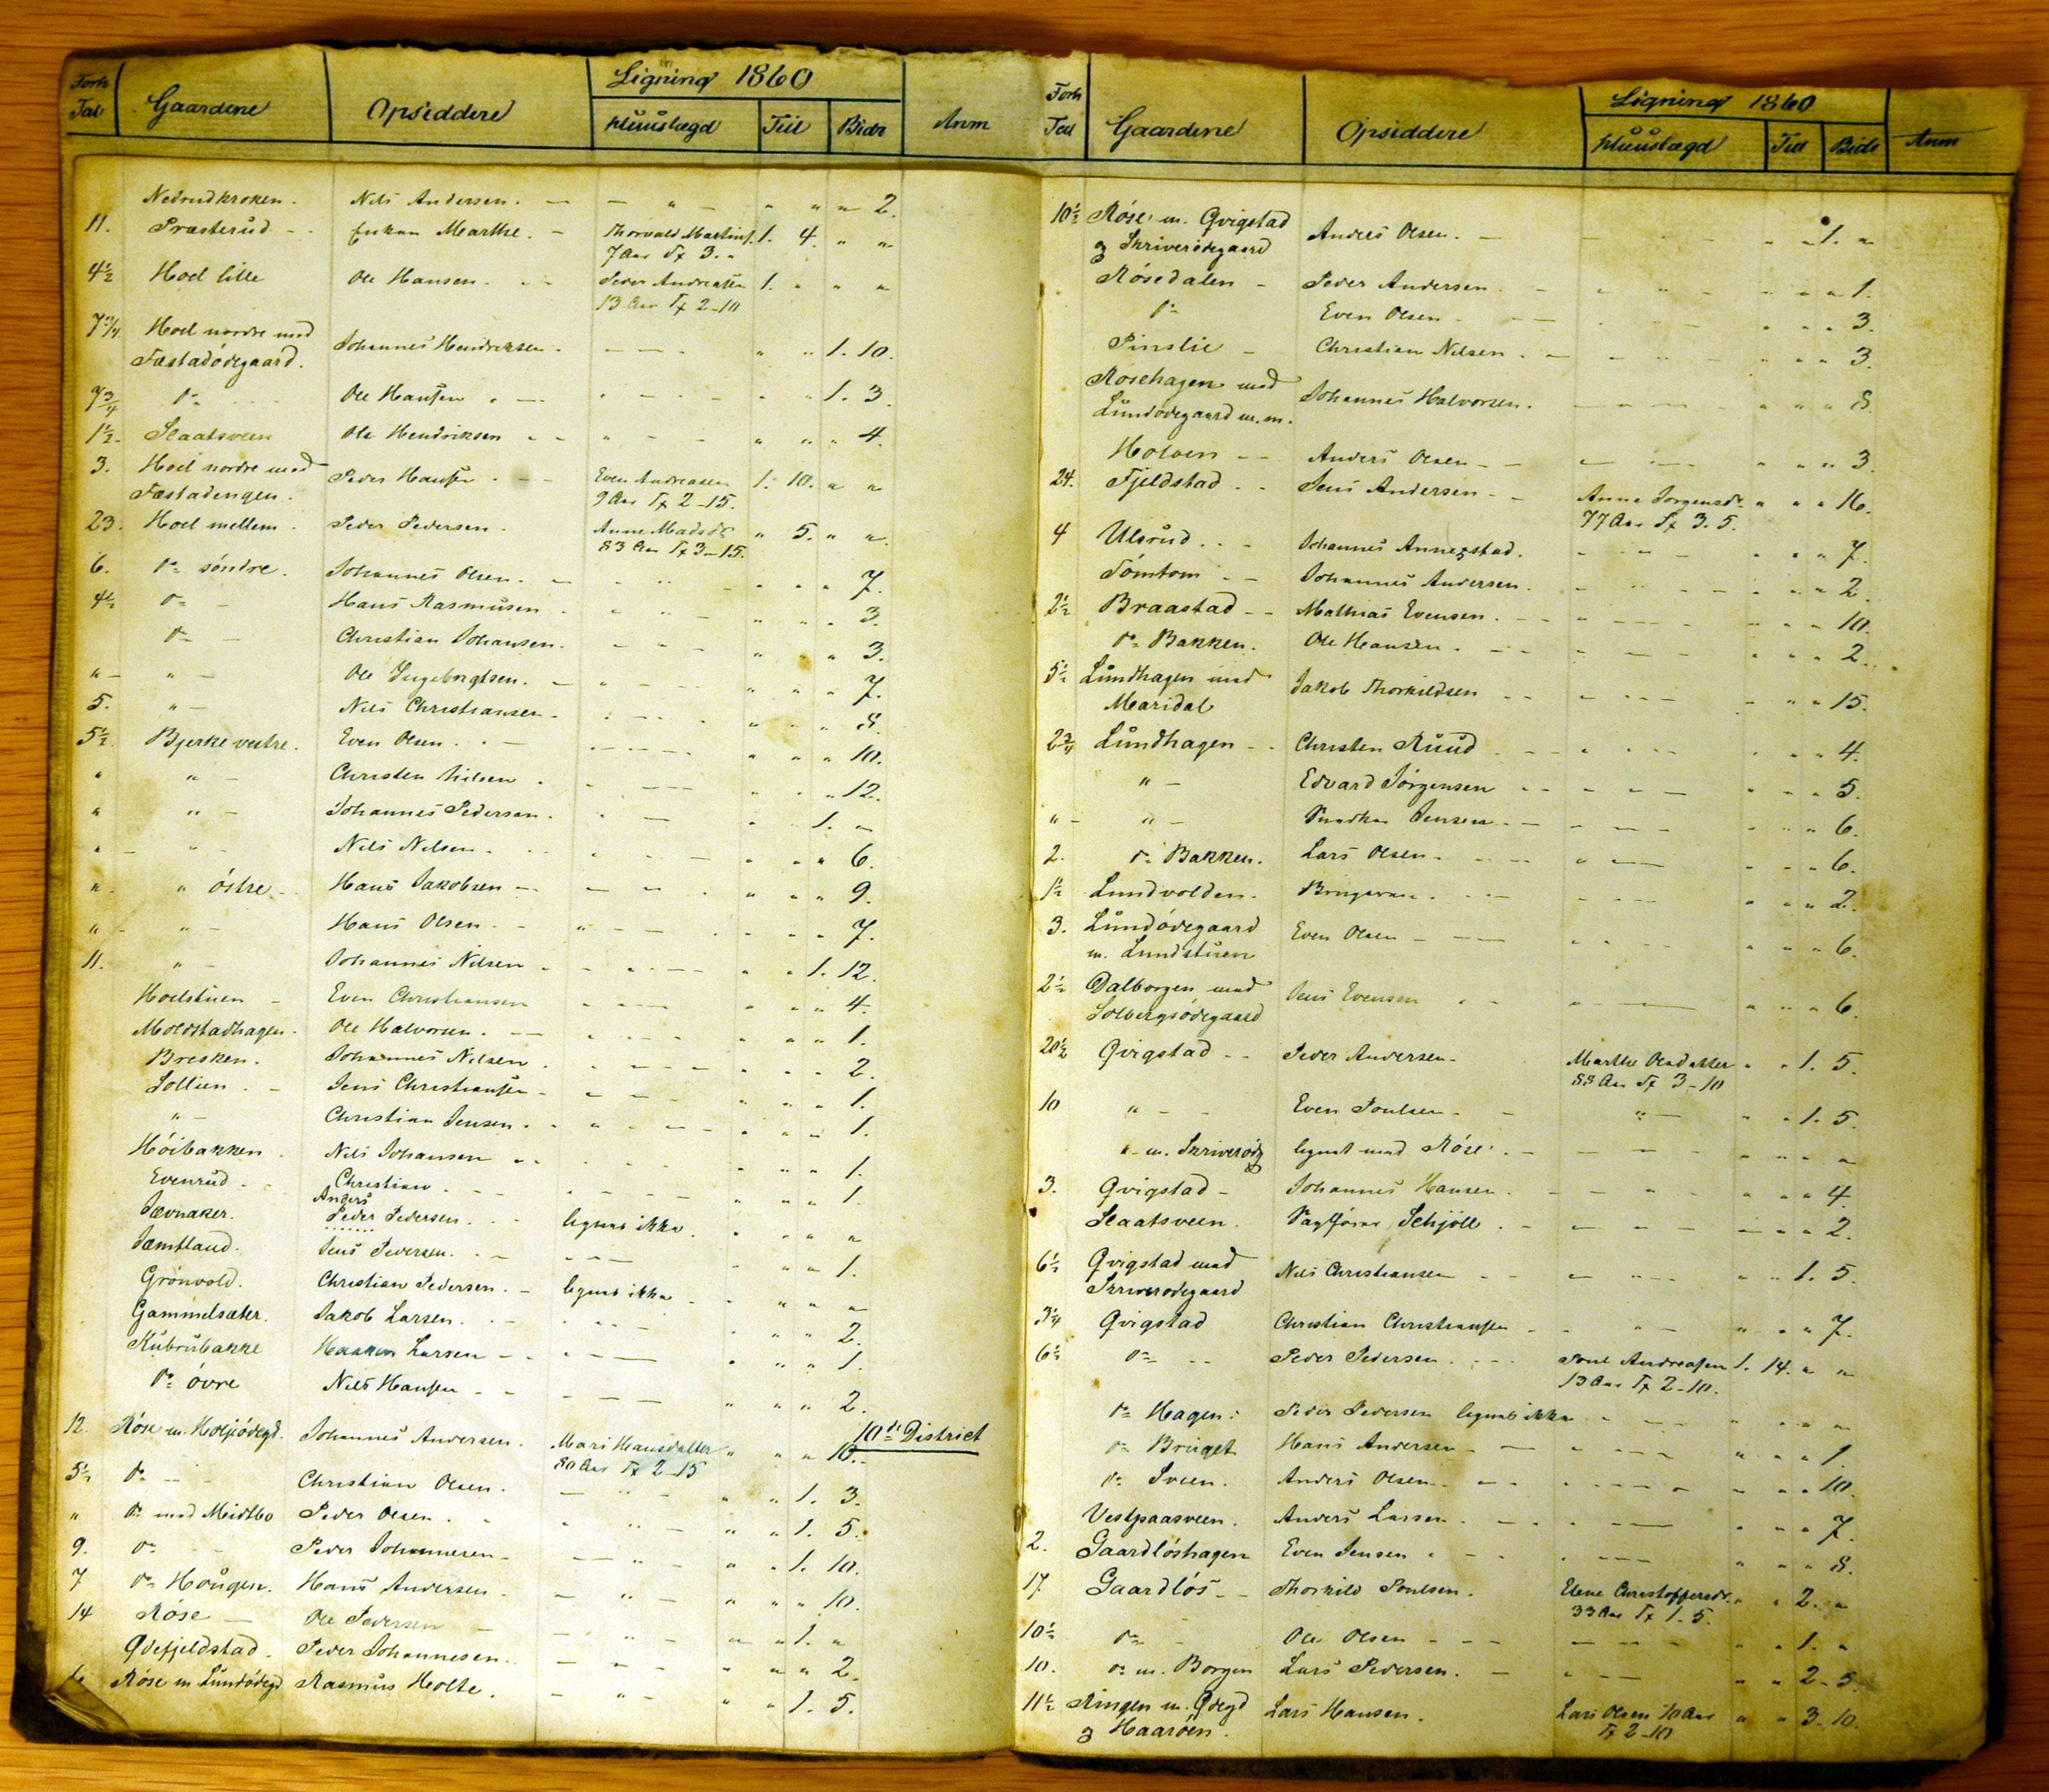 Forh Tal Gaardene Opsiddere Ligning 1860 Anm
Huuslægd Teil Bidr
Nedrudkroken. Nils Andersen. — — " — " " " 2.
11. Præsterud - - Enken Marthe. — Thorvald Martins. 1. 4. " "
7 Aar Tx 3. "
4½ Hoel lille Ole Hansen. - - Peder Andreasen 1. " " "
13 Aar Tx 2-10
7¾ Hoel nordre med Johannes Hendriksen. — — . " " 1. 10.
Fæstadödegaard.
7¾ Do - - - Ole Hansen . — " - - - " " 1. 3.
1½ - Slaatsveen Ole Hendriksen - - " - - " " " 4.
3. Hoel nordre med Peder Hansen . - - Even Andreasen 1. 10. " "
Fæstadengen. 9 Aar Tx 2-15.
23. Hoel mellem. Peder Pedersen. Anne Madsdr " 5. " "
83 Aar Tx 3-15.
6. Do söndre. Johannes Olsen. — - " - " " " 7.
4½ Do - Hans Rasmusen - " " - " " " 3.
Do - Christian Johansen. - - - " " " 3.
" - " - Ole Ingeborgtsen. — " - - " " " 7.
5. " - Nils Christiansen. - - - " " " 8.
5½. Bjerke vestre. Even Olsen. . — - - - - " " " 10.
" " - Christen Nilsen . - - - - " " " 12.
" " - Johannes Pedersen. - — " " 1. "
" - " - Nils Nilsen - - - - — " " " 6.
" - " östre - Hans Jakobsen — — - " " " 9.
" - " - Hans Olsen. - " - - " " " 7.
11. " - Johannes Nilsen - - - - " " 1. 12.
Hoelstuen - Even Christiansen " - - - " " " 4.
Moldstadhagen. Ole Halvorsen. - - " - - - " " " 1.
Bresken. Johannes Nilsen . - - - - " " " 2.
Sollien. - Jens Christiansen - - - - " " " 1.
" - Christian Jensen. - " - - - " " " 1.
Höibakken. Nils Johansen - - - - - " " " 1.
Evenrud. - Christian . - - - - - " " " 1.
Anders
Jævnaker. Peder Pedersen. - - lignes ikke. " " " "
Jæmtland. Jens Pedersen. . - - - - " " " 1.
Grönvold. Christian Pedersen. - lignes ikke - " " " "
Gammelsæter. Jakob Larsen. . - - - - " " " 2.
Kubrubakke Haaken Larsen - - - - - " " " 1.
Do övre Nils Hansen - - - - - " " " 2.
10de District
12. Röse m. Holsödegd. Johannes Andersen. Mari Hansdatter " " " 10.
80 Aar Tx 2-15
5½ Do - - - Christian Olsen. — " - " " 1. 3.
" Do med Midtbo Peder Olsen. . - " - " " 1. 5.
9. Do - - Peder Johannesen - — " - " " 1. 10.
7 Do Hougen. Hans Andersen. — " - " " " 10.
14 Röse - Ole Pedersen - — " - " " 1. "
Qvefjeldstad. Peder Johannesen. - - - " " " 2.
Röse m Lundödegd Rasmus Holte. - " - " " 1. 5.
Forh Tal Gaardene Opsiddere Ligning 1860 Anm
Huuslægd Teil Bidr
10½ Röse m. Qvigstad Anders Olsen. - - - - " " 1. "
og Skriverödegaard
Rösedalen - Peder Andersen. - - " - " " " 1.
Do Even Olsen - - - - - - " " " 3.
Pinslie - Christian Nilsen. - - " - " " " 3.
Rosehagen med Johannes Halvorsen. - - - - " " " 8.
Lundödegaard m.m.
Holven - - Anders Olsen - - - - - " " " 3.
24. Fjeldstad. . Jens Andersen - - Anne Jorgensdr " " " 16.
77 Aar Tx 3. 5.
4 Ulsrud. . - Johannes Annexstad. - - - - " " " 7.
Tömtom - - Johannes Andersen. - " - - " " " 2.
2½ Braastad - - Mathias Evensen. - - " - - - " " " 10.
Do Bakken. Ole Hansen. - - - - - " " " 2.
5½ Lundhagen med Jakob Thorkildsen - - - - - " " " 15.
Maridal
2¾ Lundhagen - . Christen Ruud . - - - - - " " " 4.
" - Edvard Jörgensen - - - - - " " " 5.
" - " - Jensen - - - - - " " " 6.
2. Do Bakken. Lars Olsen. - - - " - - " " " 6.
1½ Lundvolden. . - - - - - " " " 2.
3. Lundödegaard Even Olsen - - - " " - - " " " 6.
m. Lundstuen
2½ Dalborgen med Jens Evensen - - - - - " " " 6.
Solbergsödegaard
20½ Qvigstad - - Peder Andersen - Marthe Olsdatter " " 1. 5.
88 Aar Tx 3-10
10 " - - Even Poulsen - - " - " " 1. 5.
" - m. Skriverödg lignet med Röse. - - - - " " " "
3. Qvigstad - Johannes Hansen. - - " - " " " 4.
Slaatsveen. Schjöll . - - - - - " " 2.
6½ Qvigstad med Nils Christiansen - - - " - - " " 1. 5.
Skriverodegaard
3¼ Qvigstad Christian Christiansen - - " - " " " 7.
6½ Do - - Peder Pedersen. - - - Poul Andreasen 1. 14. " "
13 Aar Tx 2-10.
Do Hagen. Peder Pedersen lignes ikke - - - " " " "
Do Bruget Hans Andersen - - - - - - " " " 1.
Do Sveen. Anders Olsen. - - - - - - " " " 10.
Vestpaasveen. Anders Larsen. - - - - - " " " 7.
2. Gaardlöshagen Even Jensen . - - - - - " " " 8.
17. Gaardlös - - Thorkild Poulsen. Elene Christoffersdr. " " 2. "
33 Aar Tx 1. 5.
10½ Do - Ole Olsen - - - - - - " " 1. "
10. Do m. Borgen Lars Pedersen. - - - - " " 2 - 5.
11½ Ringen m. Qdegd Lars Hansen. Lars Olsen 70 Aar " " 3. 10.
og Haaröen. Tx 2-10